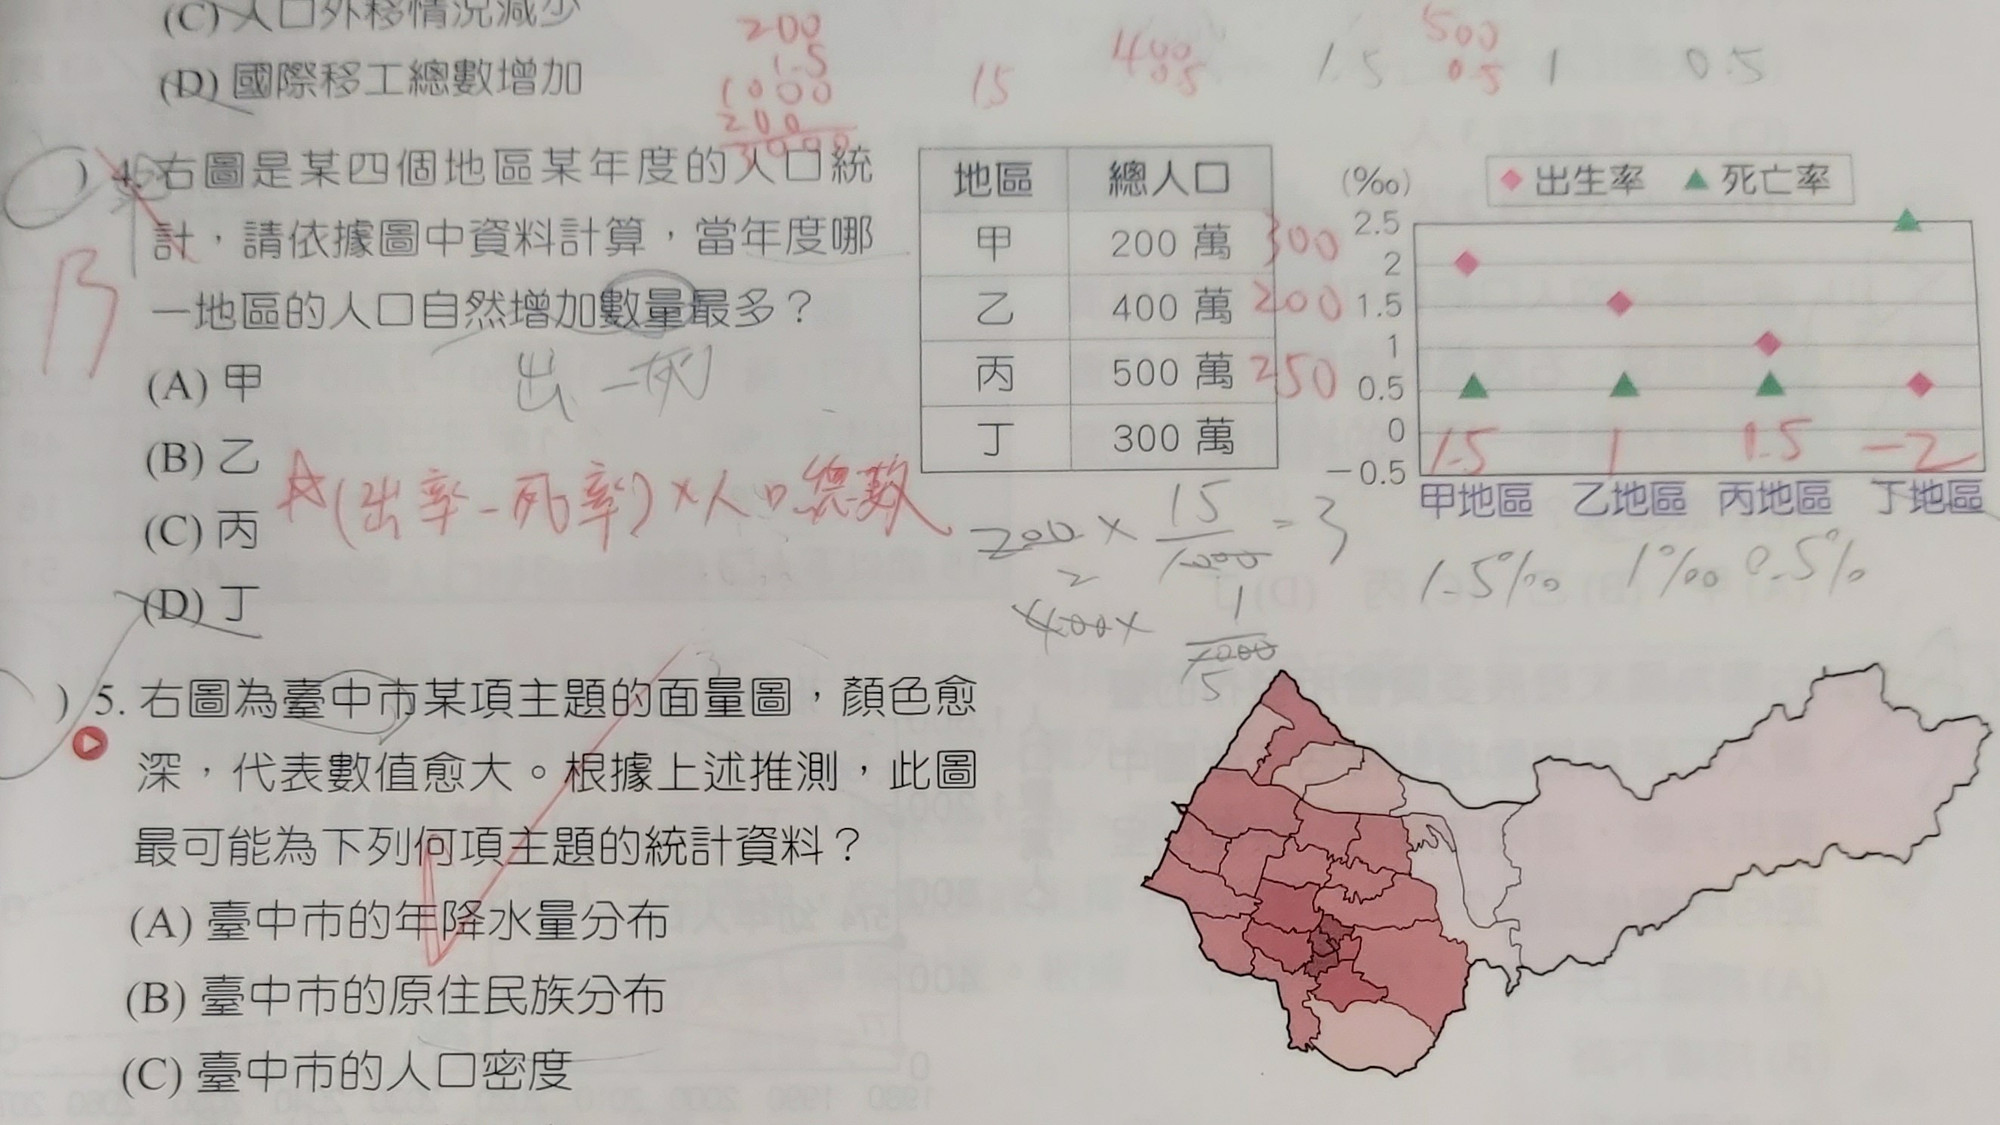 (C) 人口外移情況減少
(D) 國際移工總數增加
200
1.5
1000
200
3000
15
400
0.5
1.5
500
0.5
1
0.5
) 4. 右圖是某四個地區某年度的人口統
計，請依據圖中資料計算，當年度哪
一地區的人口自然增加數量最多？
(A) 甲
(B) 乙
(C) 丙
(D) 丁
出 – 死
☆(出率-死率)×人口總數
地區 總人口
甲 200 萬 300
乙 400 萬 200
丙 500 萬 250
丁 300 萬
(‰) ◆ 出生率 ▲ 死亡率
2.5
2
1.5
1
0.5
0
−0.5
1.5 1 0.5 -2
甲地區 乙地區 丙地區 丁地區
1.5‰ 1‰ 0.5%
200 × 15/1000 = 3
2
400 × 1/1000
5
) 5. 右圖為臺中市某項主題的面量圖，顏色愈
深，代表數值愈大。根據上述推測，此圖
最可能為下列何項主題的統計資料？
(A) 臺中市的年降水量分布
(B) 臺中市的原住民族分布
(C) 臺中市的人口密度